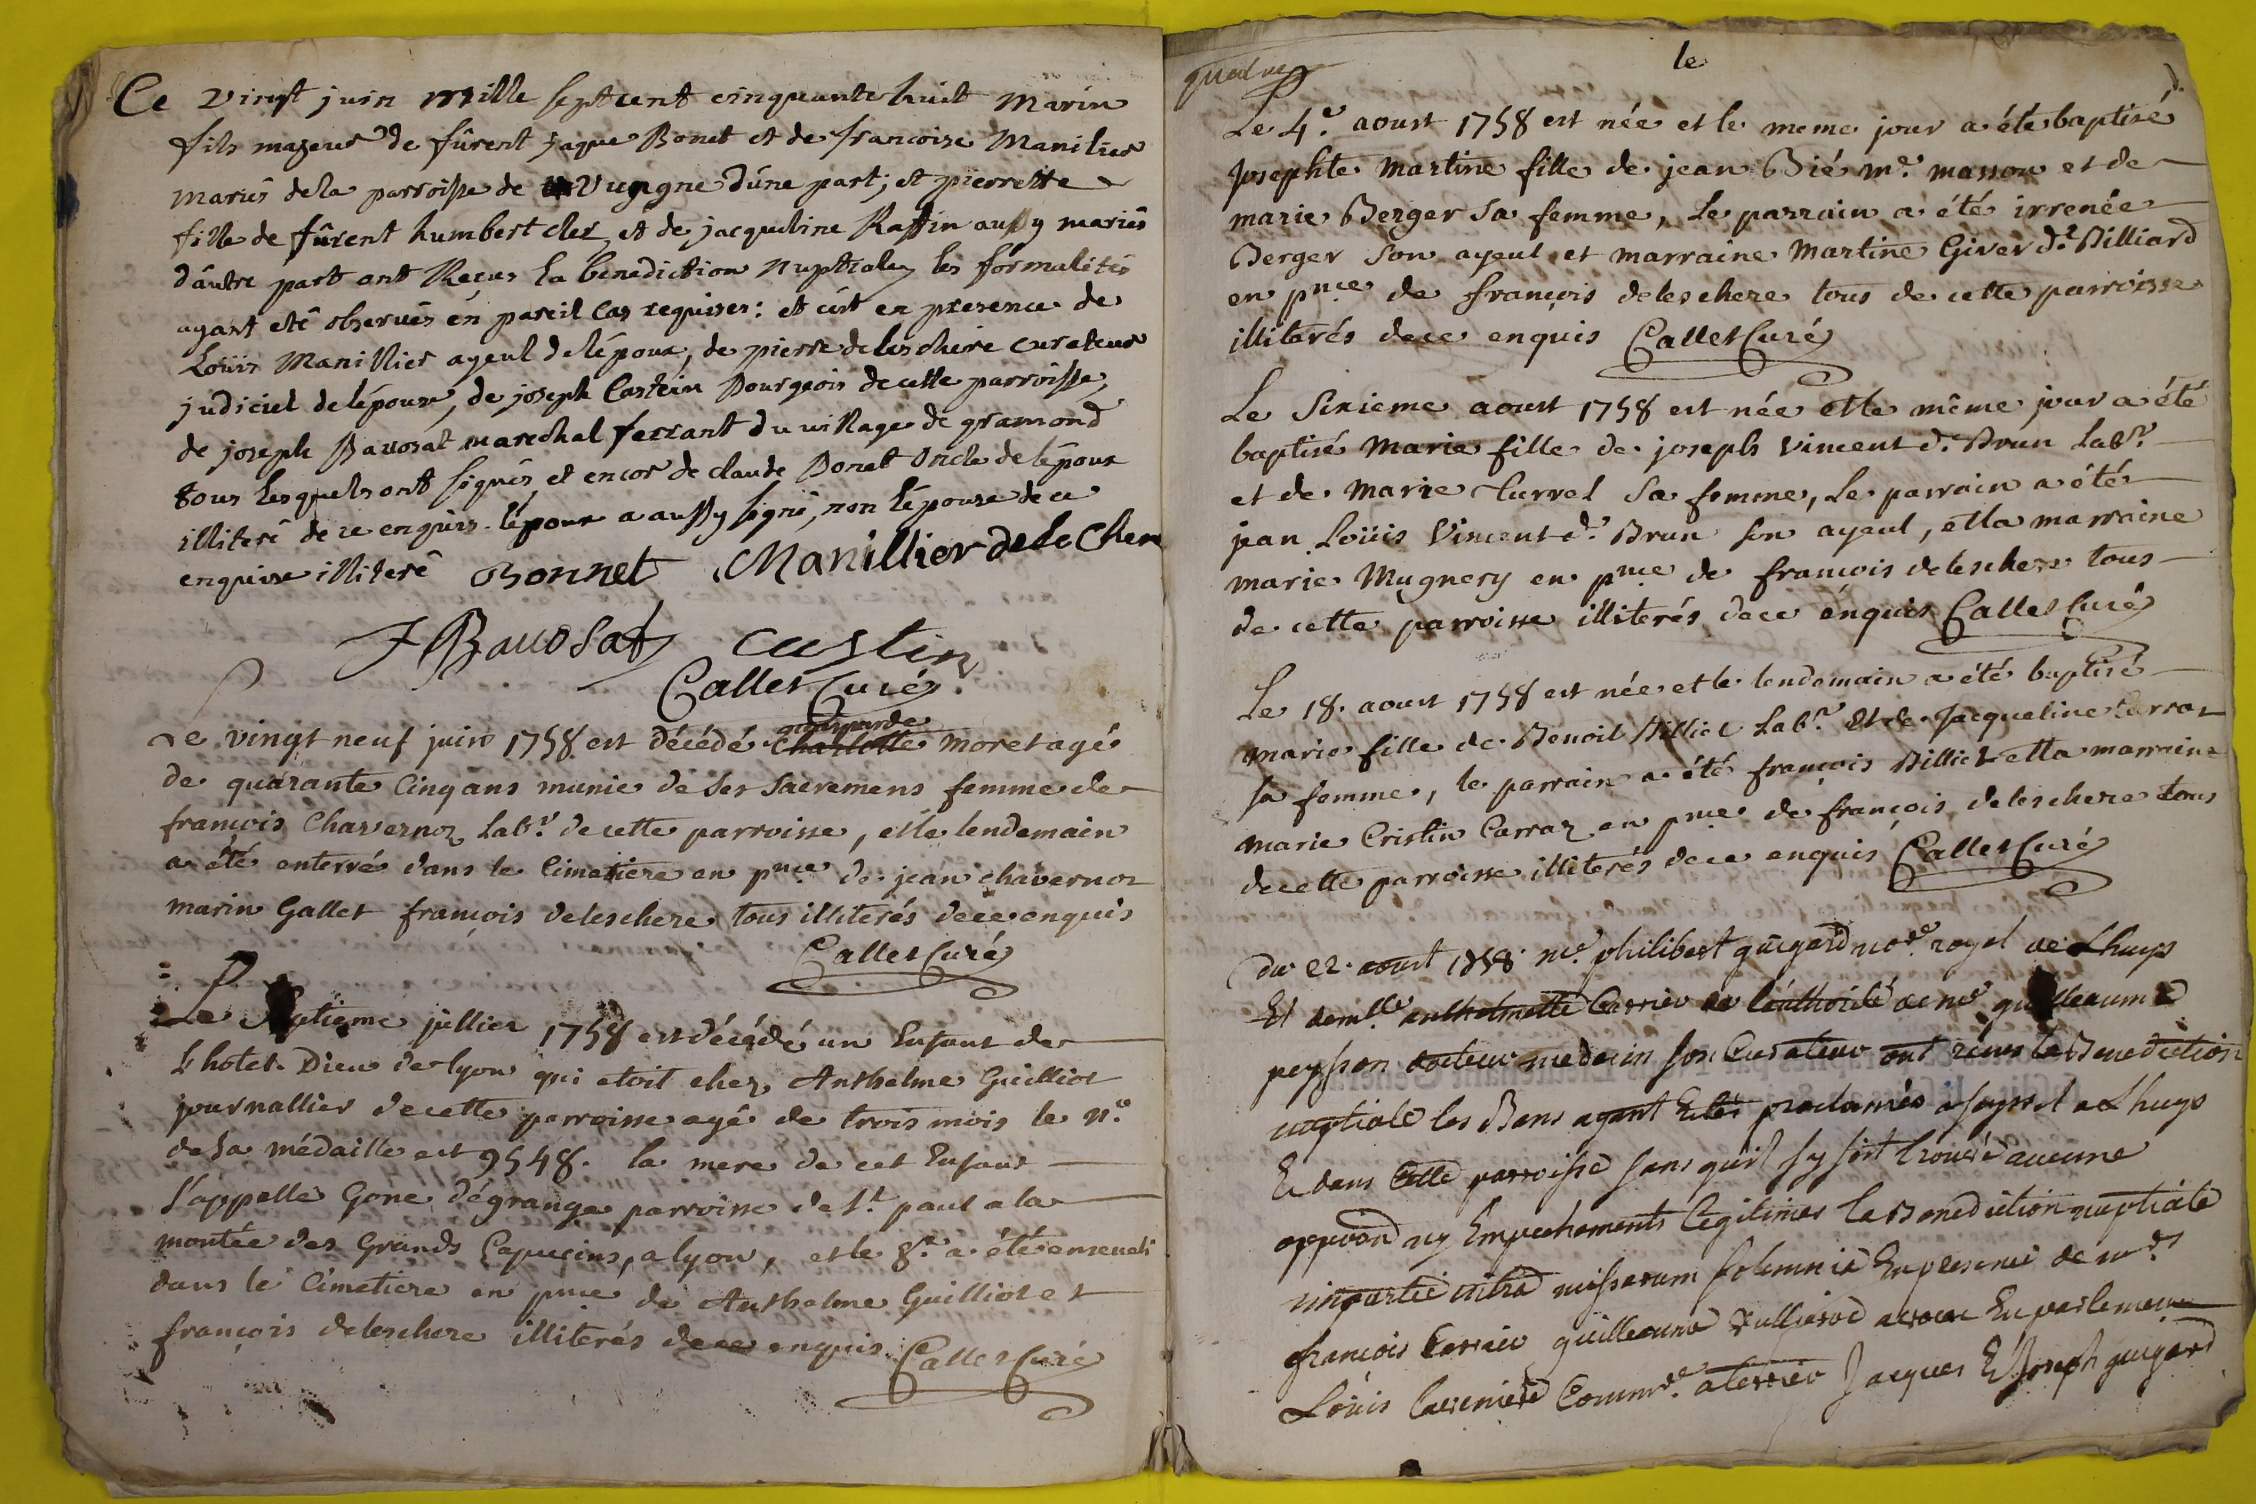 Ce vingt juin mille sept cent cinquante huit Marin
fils majeur de fûrent jaque Bonet et de francoise Manilier
mariés de la parroisse de Vugagne d'une part, et pierrette
fille de fûrent humbert cler et de jacqueline Raffin aussy mariés
d'autre part ont Reçus la benediction nuptiale, les formalités
ayant eté observés en pareil cas requises: et c'est en presence de
Loüis Manillier ayeul de lépoux, de pierre de leschere curateur
judiciel de lépouse, de joseph Castein Bourgeois de cette parroisse,
de joseph Bavosat marechal ferrant du village de gramond
tous lesquels ont signés, et encor de claude Bonet oncle de lépoux
illiteré de ce enquis. lépoux a aussy signé, non lépouse de ce
enquise illiteré Bonnet Manillier de le Chere
J Bavosat Castin
Callet Curé
Le vingt neuf juin 1758 est décédé Charlotte moret agé
de quarante Cinq ans munie de ses Sacremens femme de
françois Chavernoz Labr. de cette parroisse, et le lendemain
a été enterré dans le Cimetiere en pnce de jean chavernoz
marin Gallet françois deleschere tous illiterés de ce enquis
Callet Curé
Le Septieme juillier 1758 est décédé un Enfant de
L'hotel-Dieu de lyon qui etoit chez Anthelme Guilliot
journallier de cette parroisse agé de trois mois le n.o
de sa médaille est 9548. la mere de cet Enfant
S'appelle Gone dégrange parroisse de St. paul a la
montée des Grands Capucins, a lyon, et le 8e a été enseveli
dans le Cimetiere en pnce de Anthelme Guilliot et
françois deleschere illiterés de ce enquis Callet Curé
le
Le 4e. aoust 1758 est née et le meme jour a été baptisé
josephte Martine fille de jean Bié me. masson et de
marie Berger sa femme, Le parrain a été irrenée
Berger Son ayeul et marraine Martine Giver d.t Billiard
en pnce de françois deleschere tous de cette parroisse
illiterés de ce enquis Callet Curé
Le Sixieme aoust 1758 est née et le même jour a été
baptisé Marie fille de joseph Vincent d. Brun Labr.
et de Marie Curvel Sa femme, Le parrain a été
jean Loüis Vincent d. Brun son ayeul, et la marraine
marie Mugnery en pnce de françois deleschere tous
de cette parroisse illiterés de ce enquis Callet Curé
Le 18. aoust 1758 est née et le lendemain a été baptisé
marie fille de Benoit Billiet Labr. et de Jacqueline Carraz
sa femme, le parrain a été françois Billiet et la marraine
marie Cristin Carraz en pnce de françois deleschere tous
de cette parroisse illiterés de ce enquis Callet Curé
du 22. aoust 1758. me. philibert guigard nore. royal de Lhuys
Et demlle. anthelmette Carrier de l'authorité de me. guilleaume
peysson docteur medecin son Curateur ont reçus la Benediction
nuptiale les Bans ayant Etés proclamés a seyssel a Lhuys
Et dans Cette parroisse sans qu'il s'y soit trouvé aucune
opposon. ny Empechements legitimes la Benediction nuptiale
impartie intra missarum solemnia En presence de mrs.
françois Carrier guilleaume Rullierod avocat En parlement
Loüis Cavrinere Commre. a terrier Jacques Et Joseph guigard